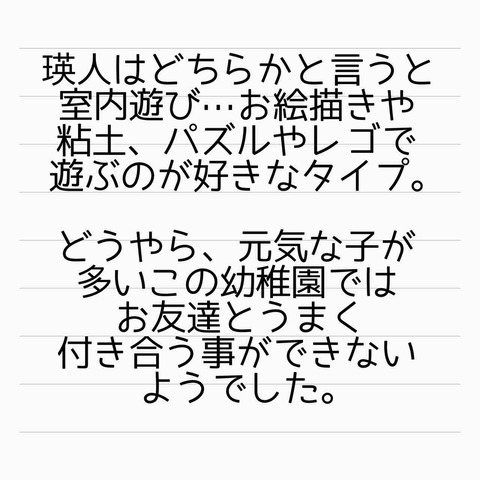 瑛人はどちらかと言うと
室内遊び…お絵描きや
粘土、パズルやレゴで
遊ぶのが好きなタイプ。
どうやら、元気な子が
多いこの幼稚園では
お友達とうまく
付き合う事ができない
ようでした。